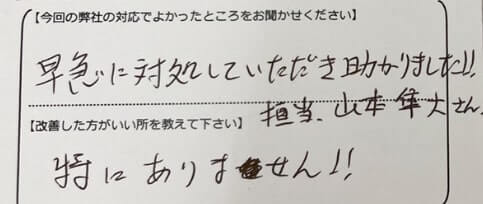 【今回の弊社の対応でよかったところをお聞かせください】
早急に対処していただき助かりました!!
担当、山本隼大さん、
【改善した方がいい所を教えて下さい】
特にありません!!